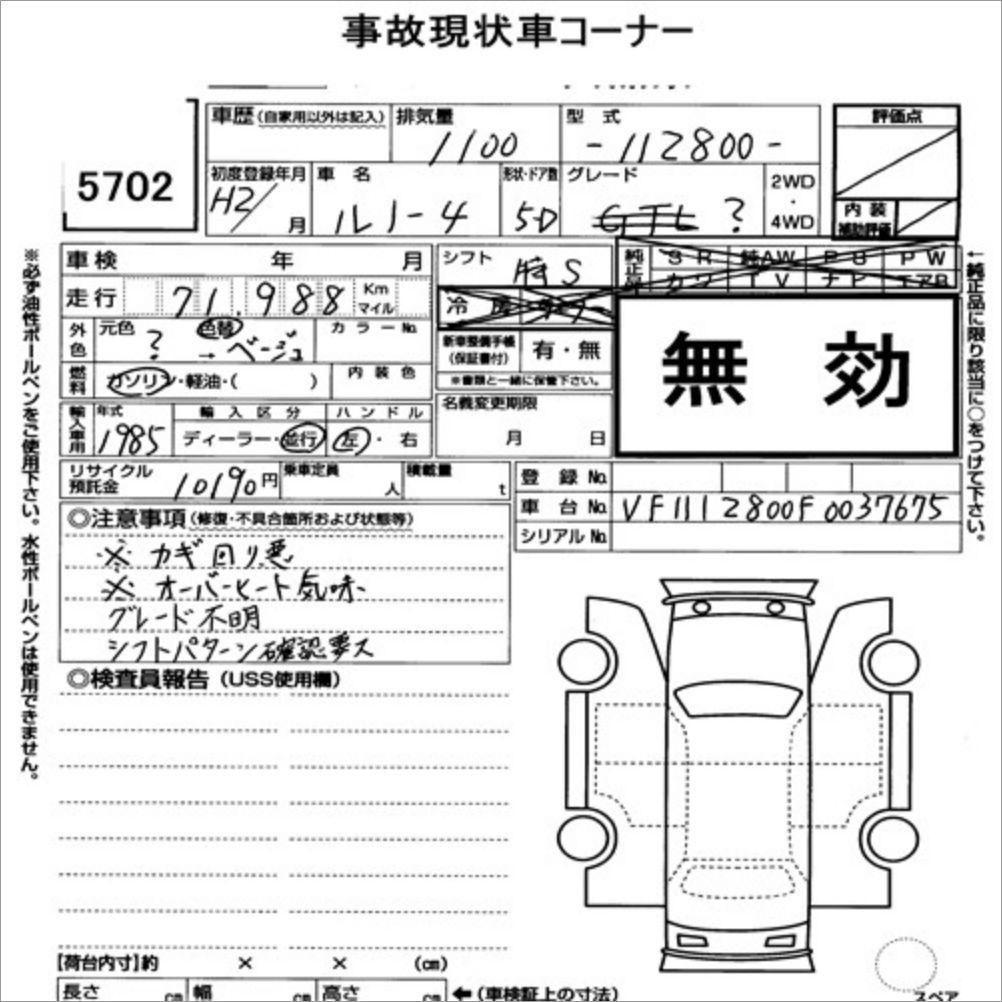 事故現状車コーナー
5702
車歴(自家用以外は記入) 排気量 1100 型式 -112800-
評価点
初度登録年月 H2/ 月 車名 ルノー4 形状・ドア数 5D グレード GTL ? 2WD・4WD
内装補助評価
※必ず油性ボールペンをご使用下さい。水性ボールペンは使用できません。
←純正品に限り該当に○をつけて下さい。
車検 年 月
走行 71,988 Km マイル
シフト S
冷房
純正品 SR 純AW PS PW
カワ TV ナビ エアB
外色 元色 ? 色替 → ベージュ カラーNo.
燃料 ガソリン・軽油・( ) 内装色
新車整備手帳(保証書付) 有・無
※書類と一緒に保管下さい。
無効
輸入車用 年式 1985 輸入区分 ディーラー・並行 ハンドル 左・右
名義変更期限 月 日
リサイクル預託金 10190円 乗車定員 人 積載量 t
登録No.
車台No. VF1112800F0037675
シリアルNo.
◎注意事項(修復・不具合箇所および状態等)
※ カギ回り悪
※ オーバーヒート気味
グレード不明
シフトパターン確認要ス
◎検査員報告(USS使用欄)
【荷台内寸】約 × × (cm)
長さ cm 幅 cm 高さ cm ←(車検証上の寸法)
スペア